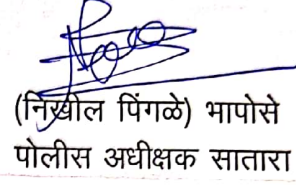 (निखील पिंगळे) भापोसे
पोलीस अधीक्षक सातारा